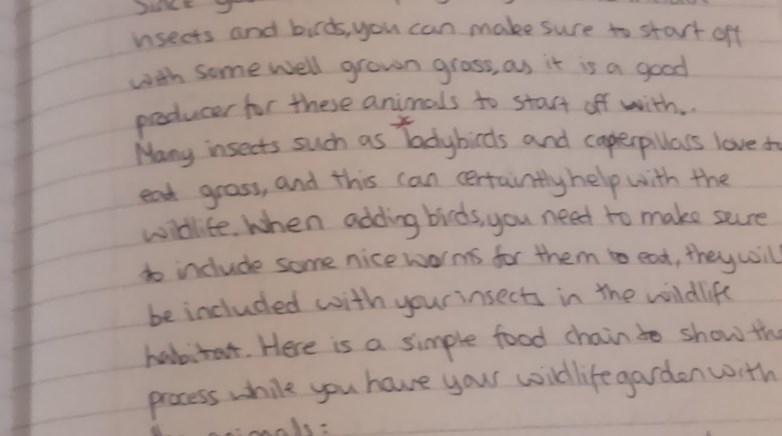 Since
nsects and birds, you can make sure to start off
with some well grown grass, as it is a good
producer for these animals to start off with..
Many insects such as ladybirds and caterpillars love to
eat grass, and this can certaintly help with the
wildlife. When adding birds, you need to make sure
to include some nice worms for them to eat, they will
be included with your insects in the wildlife
habitat. Here is a simple food chain to show the
process while you have your wildlife garden with
animals: